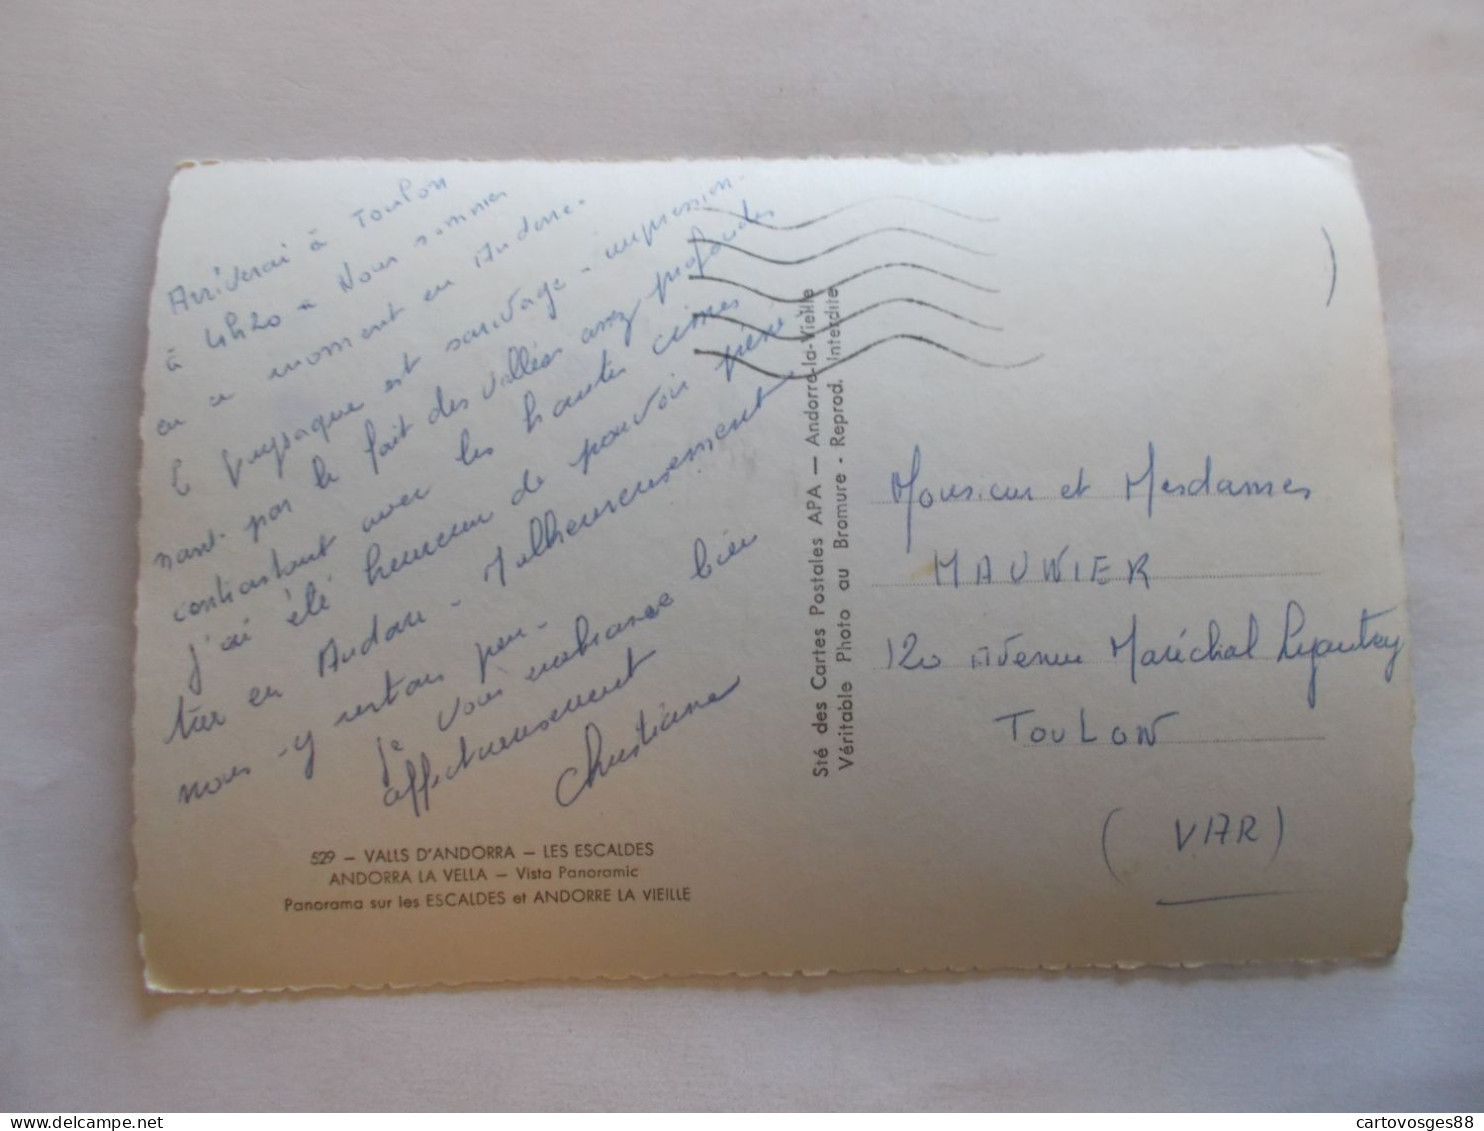 Arriverai à Toulon
à 4h20 - Nous sommes
en ce moment en Andorre.
Le paysage est sauvage - impression-
nant par le fait des vallées assez profondes
contrastant avec les hautes cimes
j'ai été heureuse de pouvoir péné-
trer en Andorre - Malheureusement
nous -y restons peu-
je vous embrasse bien
affectueusement
Christiane
529 – VALLS D'ANDORRA – LES ESCALDES
ANDORRA LA VELLA – Vista Panoramic
Panorama sur les ESCALDES et ANDORRE LA VIEILLE
Sté des Cartes Postales APA — Andorre-la-Vieille
Véritable Photo au Bromure - Reprod. Interdite
Monsieur et Mesdames
MAUNIER
120 Avenue Maréchal Lyautey
TOULON
(VAR)
cartovosges88